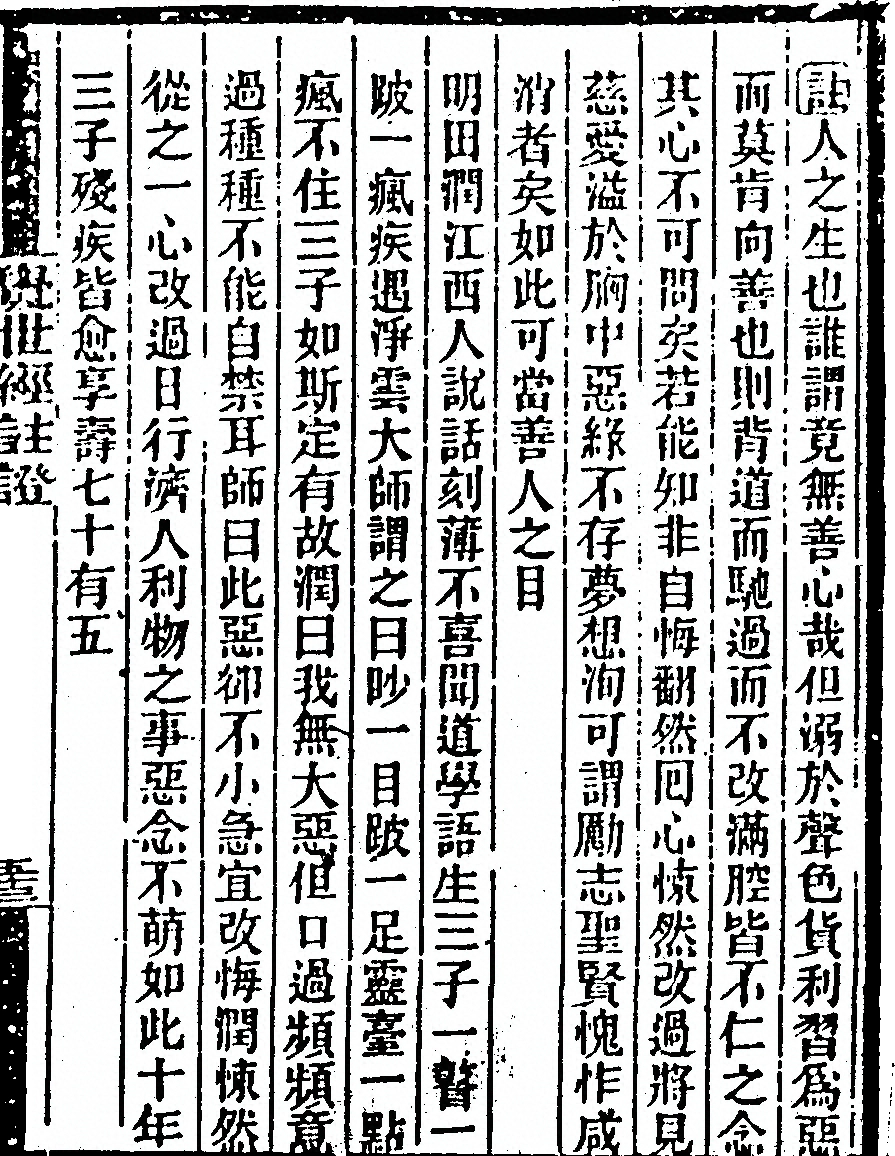 註人之生也誰謂竟無善心哉但溺於聲色貨利習爲惡
而莫肯向善也則背道而馳過而不改滿腔皆不仁之念
其心不可問矣若能知非自悔翻然回心悚然改過將見
慈愛溢於胸中惡緣不存夢想洵可謂勵志聖賢愧怍咸
消者矣如此可當善人之目
明田潤江西人說話刻薄不喜聞道學語生三子一瞽一
跛一瘋疾遇淨雲大師謂之曰眇一目跛一足靈臺一點
瘋不住三子如斯定有故潤曰我無大惡但口過頻頻意
過種種不能自禁耳師曰此惡卻不小急宜改悔潤悚然
從之一心改過日行濟人利物之事惡念不萌如此十年
三子殘疾皆愈享壽七十有五
覺世經註證